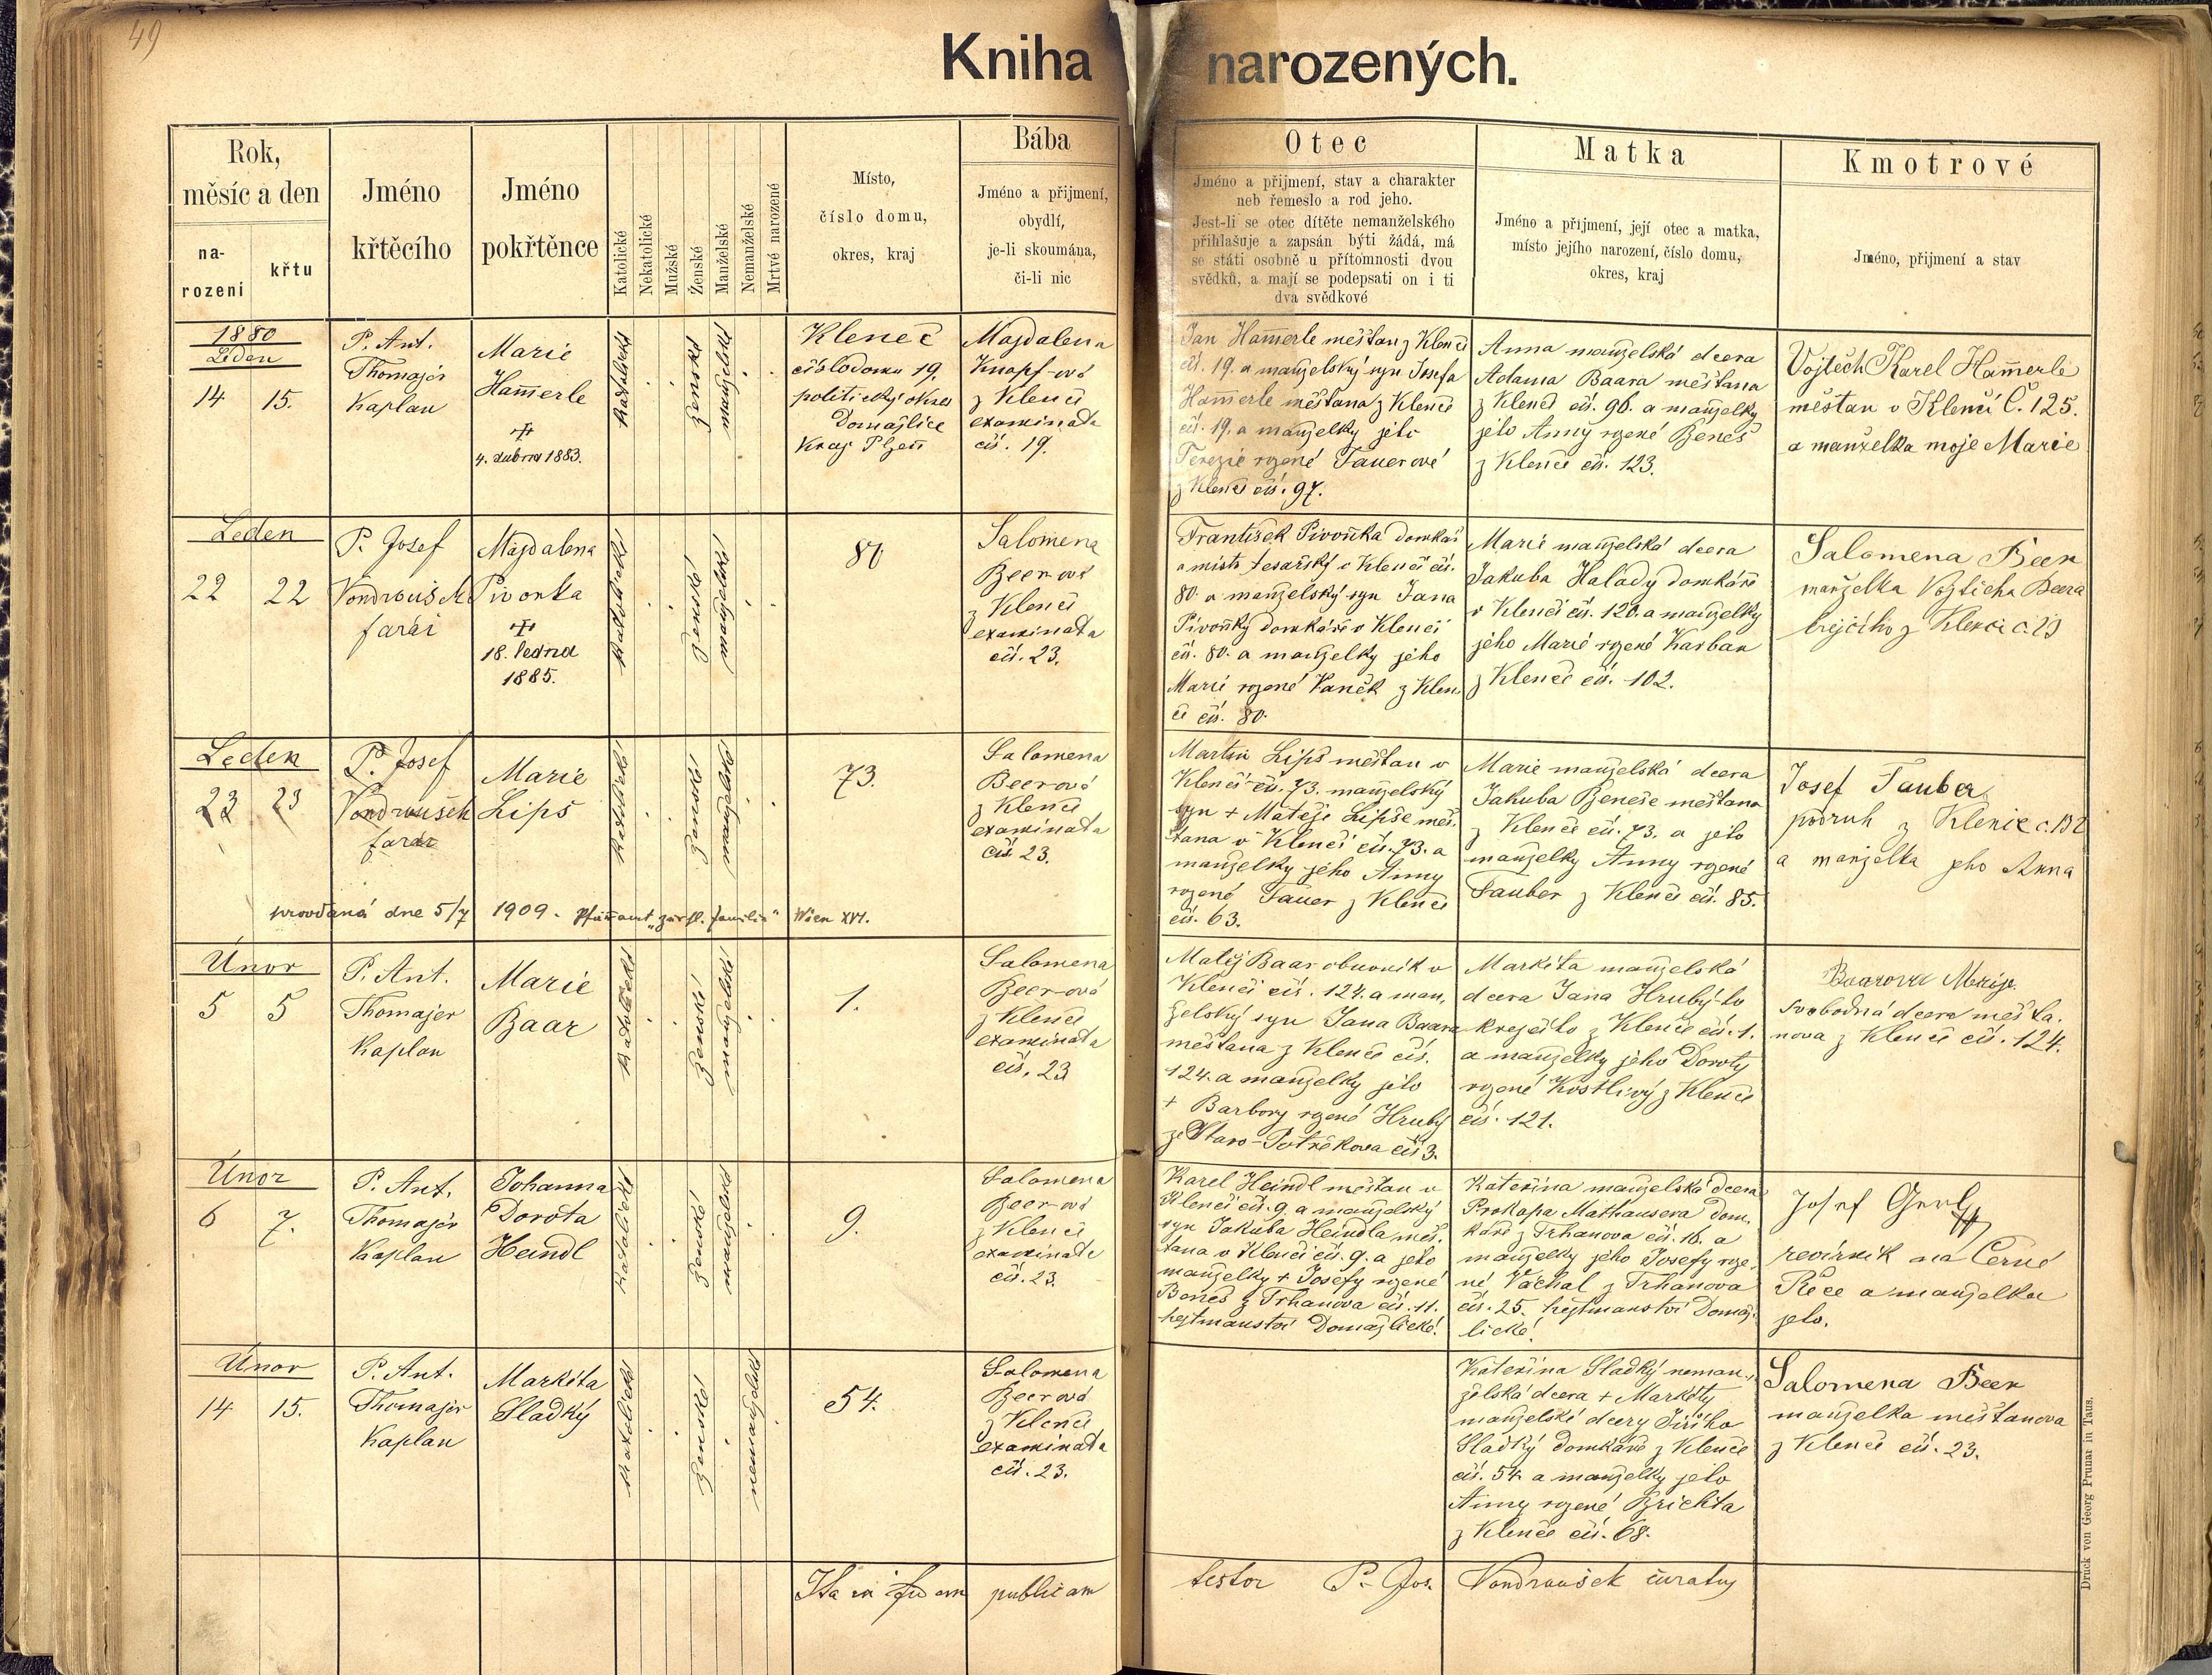 49
Kniha narozených.
Rok,
měsíc a den
na-
rození
křtu
Jméno
křtěcího
Jméno
pokřtěnce
Katolické
Nekatolické
Mužské
Ženské
Manželské
Nemanželské
Mrtvě narozené
Místo,
číslo domu,
okres, kraj
Bába
Jméno a přijmení,
obydlí,
je-li skoumána,
či-li nic
Otec
Jméno a přijmení, stav a charakter
neb řemeslo a rod jeho.
Jest-li se otec dítěte nemanželského
přihlašuje a zapsán býti žádá, má
se státi osobně u přítomnosti dvou
svědků, a mají se podepsati on i ti
dva svědkové
Matka
Jméno a přijmení, její otec a matka,
místo jejího narození, číslo domu,
okres, kraj
Kmotrové
Jméno, přijmení a stav
1880
Leden
14 15.
P. Ant.
Thomajer
Kaplan
Marie
Ham̄erle
4. dubna 1883.
katolické
ženské
manželské
Kleneč
číslo domu 19.
politický okres
Domažlice
Kraj Plzeň
Magdalena
Knopf-ová
z Klenče
examinata
čís. 19.
Jan Ham̄erle měšťan z Klenčí
čís. 19. a manželský syn Josefa
Ham̄erle měšťana z Klenče
čís. 19. a manželky jeho
Terezie rozené Tauerové
z Klenče čís. 97.
Anna manželská dcera
Adama Baara měšťana
z Klenčí čís. 96. a manželky
jeho Anny rozené Beneš
z Klenče čís. 123.
Vojtěch Karel Ham̄erle
měštan v Klenčí Č. 125.
a manželka moje Marie
Leden
22 22
P. Josef
Vondroušek
farář
Magdalena
Pivonka
18. ledna
1885.
katolické
ženské
manželské
80
Salomena
Beer-ová
z Klenčí
examinata
čís. 23.
František Pivoňka domkář
a mistr tesařský v Klenčí čís.
80. a manželský syn Jana
Pivoňky domkáře v Klenčí
čís. 80. a manželky jeho
Marie rozené Vaněk z Klen
če čís. 80.
Marie manželská dcera
Jakuba Halady domkáře
v Klenčí čís. 120. a manželky
jeho Marie rozené Karban
z Klenče čís. 102.
Salomena Beer
manželka Vojticha Beera
krejčího z Klenče č. 23
Leden
23 23
P. Josef
Vondroušek
farář
Marie
Lipš
katolické
ženské
manželské
73.
Salomena
Beerová
z Klenče
examinata
čís 23.
Martin Lipš měšťan v
Klenčí čís. 73. manželský
syn + Matěje Lipše měš.
ťana v Klenčí čís. 73. a
manželky jeho Anny
rozené Tauer z Klenče
čís. 63.
Marie manželská dcera
Jakuba Beneše měšťana
z Klenče čís. 73. a jeho
manželky Anny rozené
Tauber z Klenče čís. 85.
Josef Tauber
podruh z Klenče č. 132
a manželka jeho Anna
provdaná dne 5/7 1909. Pfarramt "zur hl. Familie" Wien XVI.
Únor
5 5
P. Ant.
Thomajer
Kaplan
Marie
Baar
katolické
ženské
manželské
1.
Salomena
Beer-ová
z Klenče
examinata
čís. 23
Matěj Baar obuvník v
Klenčí čís. 124. a man,
želský syn Jana Baara
měšťana z Klenče čís.
124. a manželky jeho
+ Barbory rozené Hrubý
ze Staro-Postřekova čís 3.
Markéta manželská
dcera Jana Hrubý-ho
krejčího z Klenče čís. 1.
a manželky jeho Doroty
rozené Kostlivý z Klenče
čís. 121.
Baarova Marije
svobodná dcera měšťa.
nova z Klenče čís. 124.
Únor
6 7.
P. Ant.
Thomajer
Kaplan
Johanna
Dorota
Heindl
katolické
ženské
manželské
9.
Salomena
Beer-ová
z Klenče
examinata
čís. 23.
Karel Heindl měšťan v
Klenčí čís. 9. a manželský
syn Jakuba Heindla měš.
ťana v Klenčí čís. 9. a jeho
manželky + Josefy rozené
Beneš z Trhanova čís. 11.
hejtmanství Domažlické.
Kateřina manželská dcera
Prokopa Mathausera dom,
káře z Trhanova čís. 16. a
manželky jeho Josefy roze,
né Vachal z Trhanova
čís. 25. hejtmanství Domaž,
lické.
Josef Gerl
revírník na Černé
Řece a manželka
jeho.
Únor
14 15.
P. Ant.
Thomajer
Kaplan
Markéta
Sladký
katolické
ženské
nemanželské
54.
Salomena
Beerová
z Klenče
examinata
čís. 23.
Kateřina Sladký neman.,
želská dcera + Markéty
manželské dcery Jiřího
Sladký domkáře z Klenče
čís. 54. a manželky jeho
Anny rozené Brichta
z Klenče čís. 68.
Salomena Beer
manželka měšťanova
z Klenče čís. 23.
Ita in fidem publicam testor P. Jos. Vondroušek curatus
Druck von Georg Prunar in Taus.